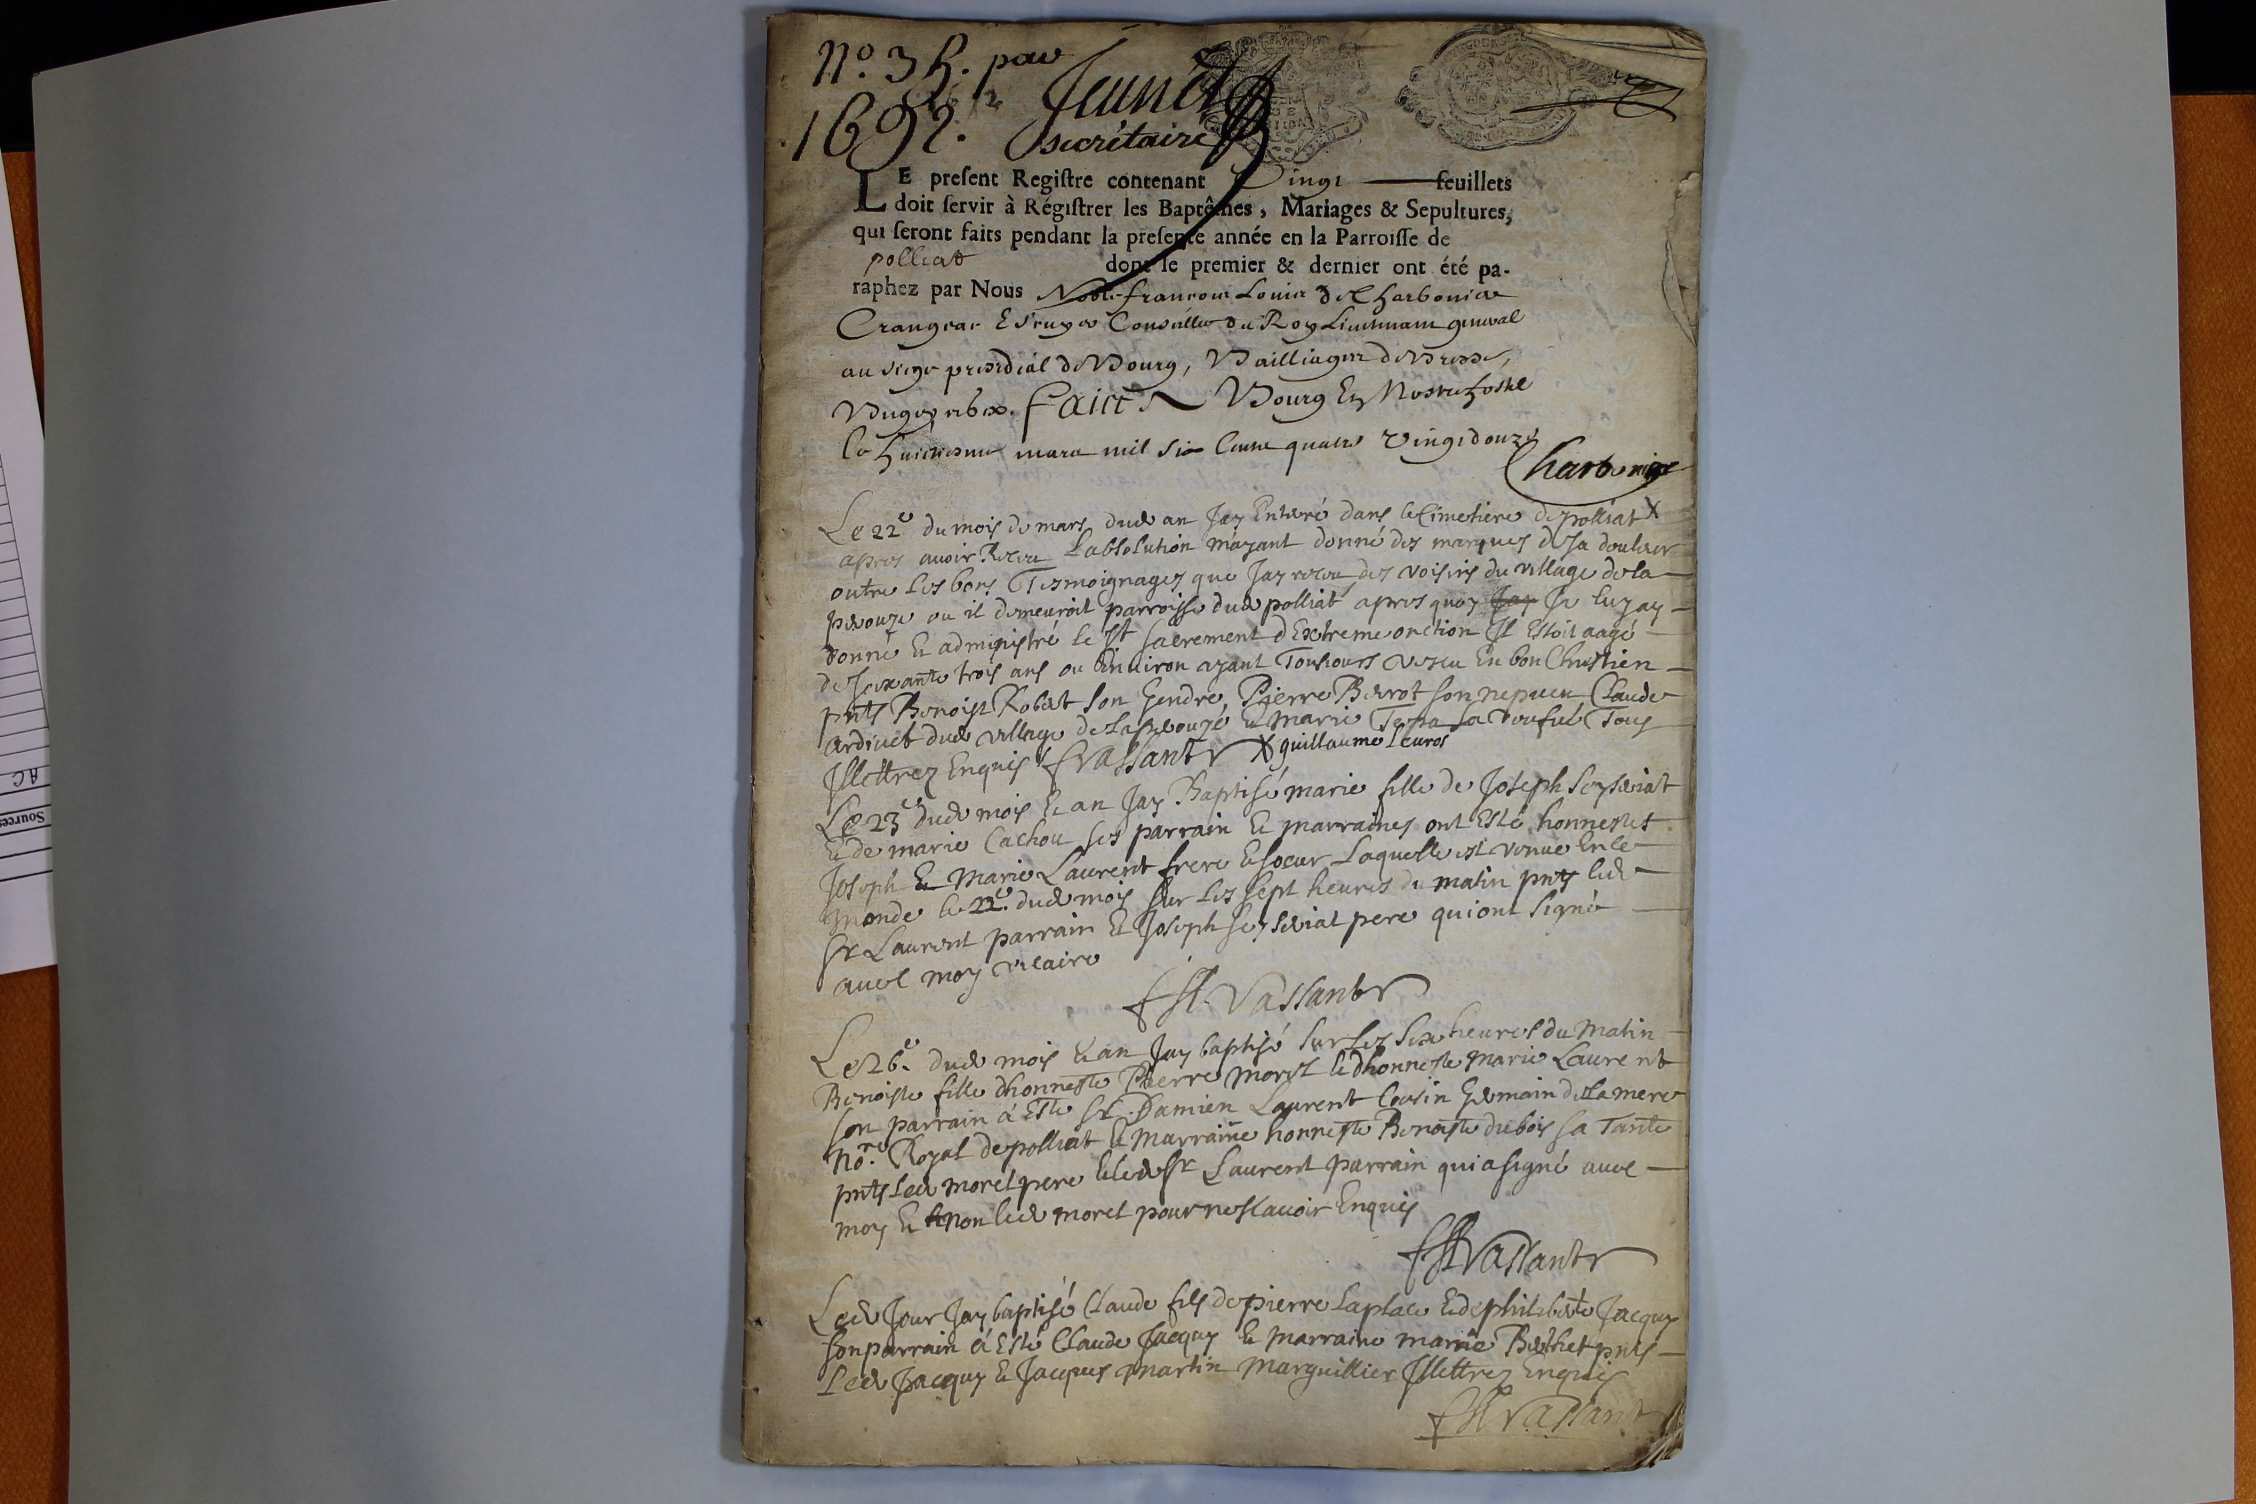 N.º 35. pour
1692.
Jeunet
secrétaire
LE present Registre contenant Vingt feuillets
doit servir à Régistrer les Baptêmes, Mariages & Sepultures,
qui seront faits pendant la presente année en la Parroisse de
polliat dont le premier & dernier ont été pa-
raphez par Nous Noble françois Louis de Charbonier
Crangeac Escuyer Conseiller du Roy Lieutenant general
au siege presidial de Bourg, Bailliages de Bresse,
Bugey Fait à Bourg En Nostre hostel
le huictiesme mars mil six cent quatre vingt douze
Charbonier
Le 22e du mois de mars dud an Jay Enterré dans le Cimetiere de polliat X
apres avoir Receu Labsolution mayant donné des marques de sa douleur
outre Les bons Tesmoignages que Jay receu des voisins du village de la
perouze ou il demeuroit parroisse dud polliat apres quoy Jay Je luy ay
donné et administré le st sacrement dExtreme onction Il Estoit aagé
de soixante trois ans ou Environ ayant Tousiours vescu En bon Chrestien
pnts Benoist Robert son Gendre, Pierre Berrot son nepveu Claude
Ardiuet dud village de la perouze et marie sa veufue Tous
Illettrez Enquis Vassant X guillaume
Le 23e dud mois et an Jay Baptisé marie fille de Joseph
et de marie Cachou ses parrain et marraines ont Esté honnestes
Joseph et Marie Laurent frere et soeur Laquelle est venue En ce
monde le 22e dud mois sur Les sept heures du matin pnts led
sr Laurent parrain et Joseph pere qui ont signé
avec moy vicaire
Vassant
Le 26e dud mois et an Jay baptisé sur Les six heures du Matin
Benoiste fille dhonneste Pierre Morel et dhonneste Marie Laurent
son parrain à Esté sr Damien Laurent Cousin Germain de La mere
nore Royal de polliat et Marraine honneste Benoiste dubois sa Tante
pnts Led morel pere et led sr Laurent parrain qui a signé avec
moy et non led morel pour ne scavoir Enquis
Vassant
Led Jour Jay baptisé Claude fils de pierre Laplace et de philiberte Jacquy
son parrain à Esté Claude Jacquy et Marraine marie Berthet pnts
Led Jacquy et Jacques martin Marguillier Illettrez Enquis
Vassant
A C
Sources